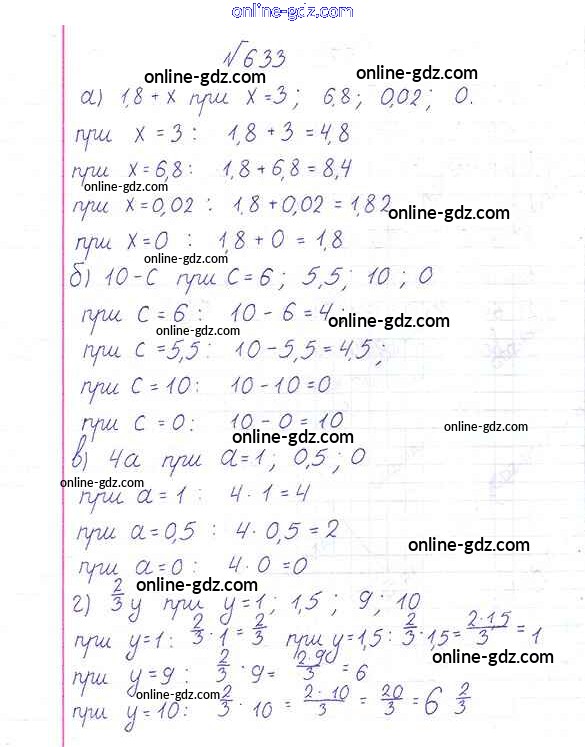 online-gdz.com
№633
online-gdz.com online-gdz.com
а) 1,8 + x при x = 3 ; 6,8 ; 0,02 ; 0.
online-gdz.com
при x = 3 : 1,8 + 3 = 4,8
при x = 6,8 : 1,8 + 6,8 = 8,4
online-gdz.com
при x = 0,02 : 1,8 + 0,02 = 1,82
online-gdz.com
при x = 0 : 1,8 + 0 = 1,8
online-gdz.com
б) 10 - c при c = 6 ; 5,5 ; 10 ; 0
при c = 6 : 10 - 6 = 4 ;
online-gdz.com
online-gdz.com
при c = 5,5 : 10 - 5,5 = 4,5 ;
при c = 10 : 10 - 10 = 0
при c = 0 : 10 - 0 = 10
online-gdz.com
online-gdz.com
в) 4a при a = 1 ; 0,5 ; 0
online-gdz.com
при a = 1 : 4 · 1 = 4
при a = 0,5 : 4 · 0,5 = 2
online-gdz.com
при a = 0 : 4 · 0 = 0
online-gdz.com
г) 2/3 y при y = 1 ; 1,5 ; 9 ; 10
при y = 1 : 2/3 · 1 = 2/3 при y = 1,5 : 2/3 · 1,5 = 2·1,5/3 = 1
online-gdz.com
при y = 9 : 2/3 · 9 = 2·9/3 = 6
online-gdz.com
при y = 10 : 2/3 · 10 = 2·10/3 = 20/3 = 6 2/3